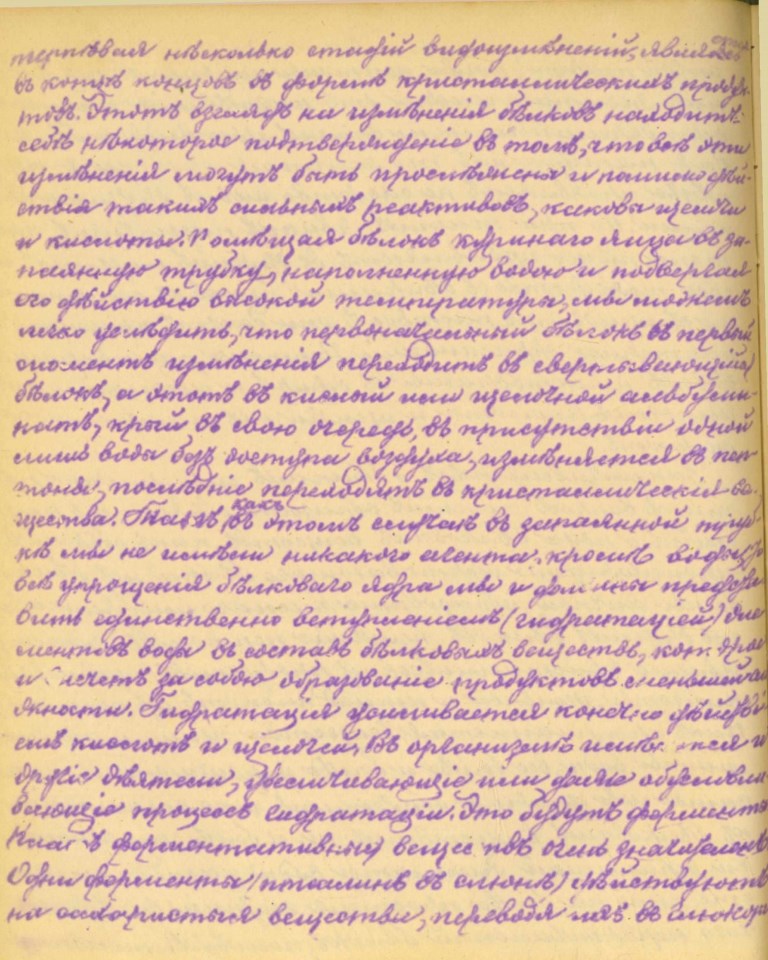 терпѣвая нѣсколько стадій видоизмѣненій, является
въ концѣ концовъ въ формѣ кристаллическихъ продук-
товъ. Этотъ взглядъ на измѣненія бѣлковъ находитъ
себѣ нѣкоторое подтвержденіе въ томъ, что всѣ эти
измѣненія могутъ быть прослѣжены и помимо дѣй-
ствія такихъ сильныхъ реактивовъ, каковы щелочи
и кислоты. Помѣщая бѣлокъ куринаго яйца въ за-
паянную трубку, наполненную водою и подвергая
его дѣйствію высокой температуры, мы можемъ
легко услѣдить, что первоначальный бѣлокъ въ первый
моментъ измѣненія переходитъ въ свертывающійся
бѣлокъ, а этотъ въ кислый или щелочной альбуми-
натъ, крый въ свою очередь, въ присутствіи одной
лишь воды безъ доступа воздуха, измѣняется въ пеп-
тоны, послѣдніе переходятъ въ кристаллическія ве-
щества. Такъ какъ въ этомъ случаѣ въ запаянной труб-
кѣ мы не имѣли никакого агента, кромѣ воды,
упрощенія бѣлковаго ядра мы и должны
единственно вступленіемъ (гидратаціей) эле-
ментовъ воды въ составъ бѣлковыхъ веществъ,
и за собою образованіе продуктовъ меньшей
Гидратація усиливается конечно дѣйстві-
емъ кислотъ и щелочей. Въ организмѣ и
другіе дѣятели, увеличивающіе или даже обусловли-
вающіе процессъ гидратаціи. Это будутъ ферменты
ферментативныхъ веществъ очень значителенъ
Одни ферменты (птіалинъ въ слюнѣ) дѣйствуютъ
на сахаристыя вещества, переводя ихъ въ глюкозу